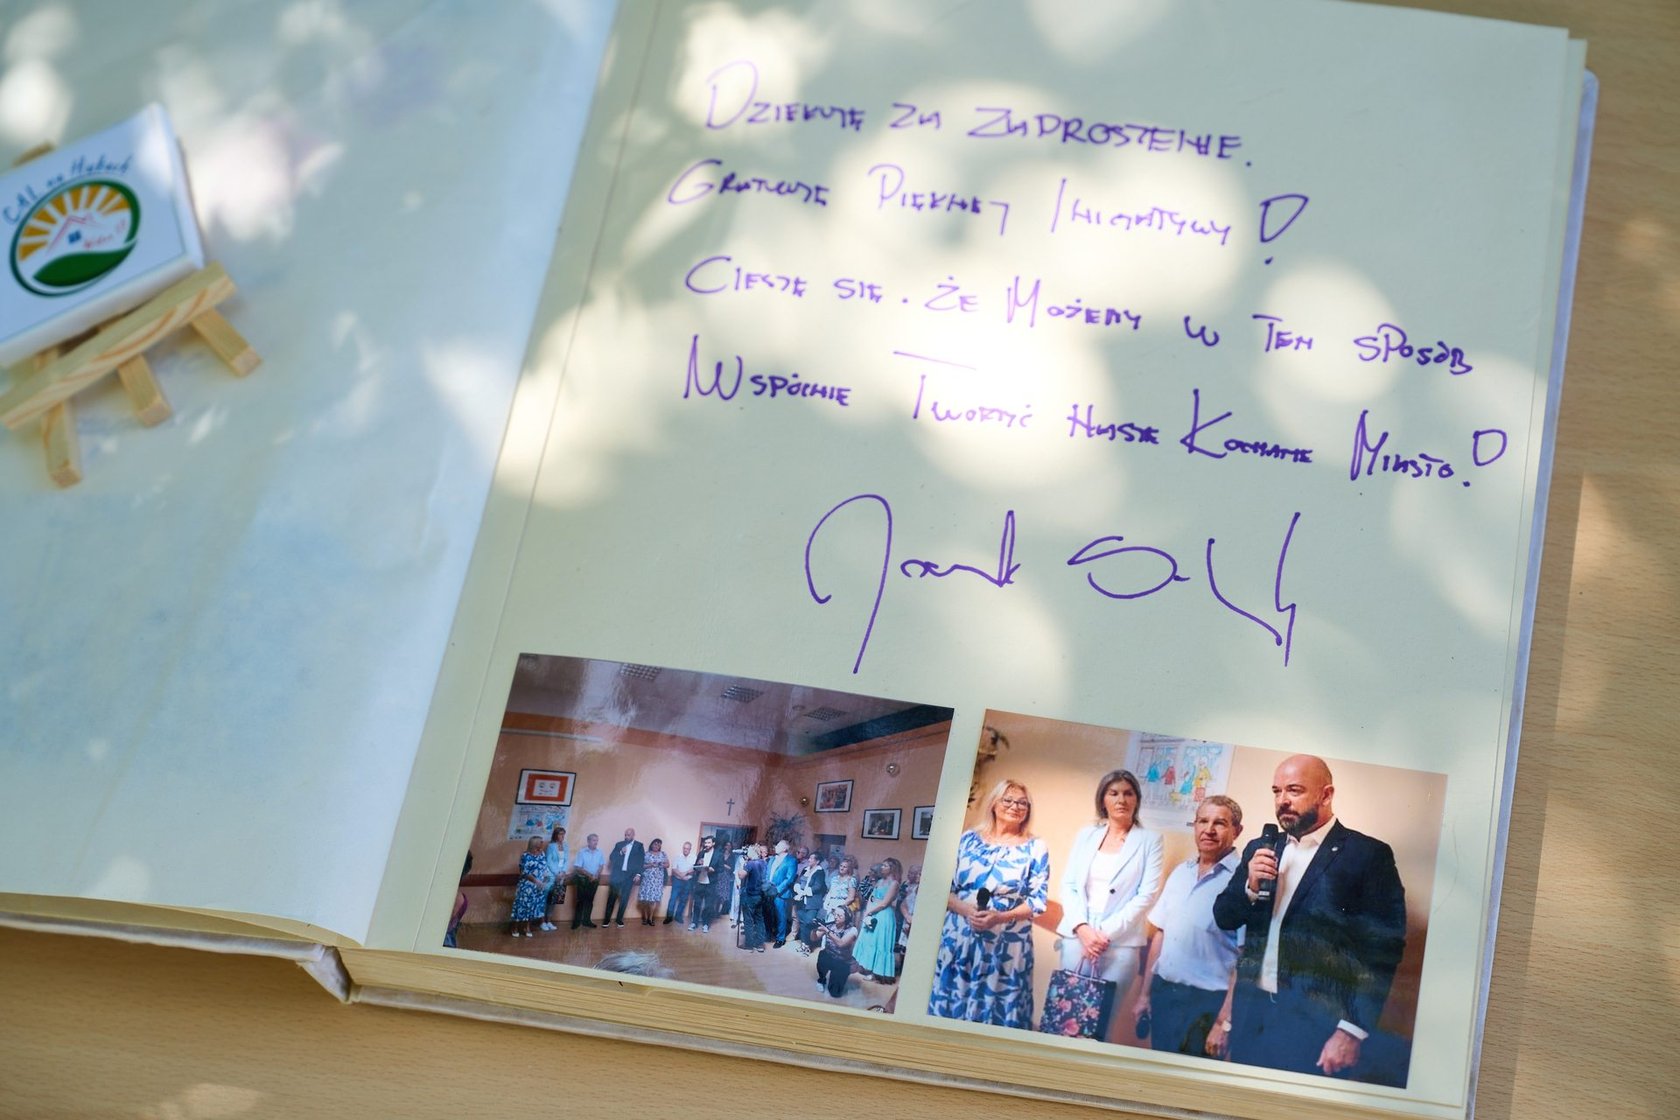 CAL na Hubach
Dziękuję za zaproszenie.
Gratuluję Pięknej Inicjatywy!
Cieszę się, że Możemy w Ten sposób
Wspólnie Tworzyć nasze Kochane Miasto!
Jacek